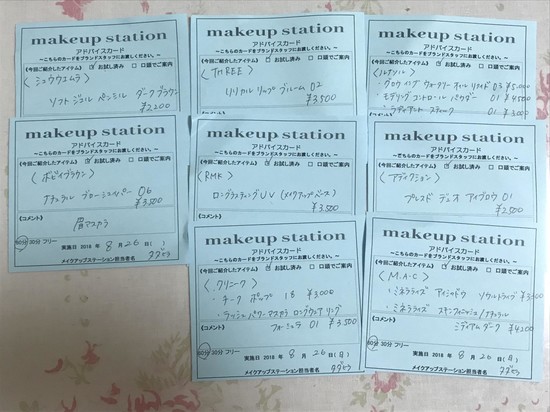 makeup station
アドバイスカード
～こちらのカードをブランドスタッフにお渡しください。～
《今回ご紹介したアイテム》 ☑お試し済み □口頭でご案内
〈シュウウエムラ〉
ソフト ジェル ペンシル ダークブラウン
¥2,200
makeup station
アドバイスカード
～こちらのカードをブランドスタッフにお渡しください。～
《今回ご紹介したアイテム》 ☑お試し済み □口頭でご案内
〈THREE〉
リリカル リップ ブルーム 02
¥3,500
makeup station
アドバイスカード
～こちらのカードをブランドスタッフにお渡しください。～
《今回ご紹介したアイテム》 ☑お試し済み □口頭でご案内
〈ルナソル〉
・グロウイング ウォータリー オイル リクイド 03 ¥5,000
・モデリング コントロール パウダー 01 ¥4,500
・ラディアント スティック 01 ¥3,000
makeup station
アドバイスカード
～こちらのカードをブランドスタッフにお渡しください。～
《今回ご紹介したアイテム》 ☑お試し済み □口頭でご案内
〈ボビイブラウン〉
ナチュラル ブローシェイパー 06
¥3,500
《コメント》
眉マスカラ
60分 30分 フリー
実施日 2018 年 8 月 26 日( )
メイクアップステーション担当者名
makeup station
アドバイスカード
～こちらのカードをブランドスタッフにお渡しください。～
《今回ご紹介したアイテム》 ☑お試し済み □口頭でご案内
〈RMK〉
ロングラスティングUV (メイクアップベース)
¥3,500
《コメント》
makeup station
アドバイスカード
～こちらのカードをブランドスタッフにお渡しください。～
《今回ご紹介したアイテム》 ☑お試し済み □口頭でご案内
〈アディクション〉
プレスド デュオ アイブロウ 01
¥2,500
《コメント》
makeup station
アドバイスカード
～こちらのカードをブランドスタッフにお渡しください。～
《今回ご紹介したアイテム》 ☑お試し済み □口頭でご案内
〈クリニーク〉
・チーク ポップ 18 ¥3,000
・ラッシュ パワー マスカラ ロングウェアリング
フォーミュラ 01 ¥3,500
《コメント》
60分 30分 フリー
実施日 2018 年 8 月 26 日(日)
メイクアップステーション担当者名
makeup station
アドバイスカード
～こちらのカードをブランドスタッフにお渡しください。～
《今回ご紹介したアイテム》 ☑お試し済み □口頭でご案内
〈M.A.C〉
・ミネラライズ アイシャドウ ¥3,000
・ミネラライズ スキンフィニッシュ/ナチュラル
ミディアムダーク ¥4,200
《コメント》
60分 30分 フリー
実施日 2018 年 8 月 26 日(日)
メイクアップステーション担当者名